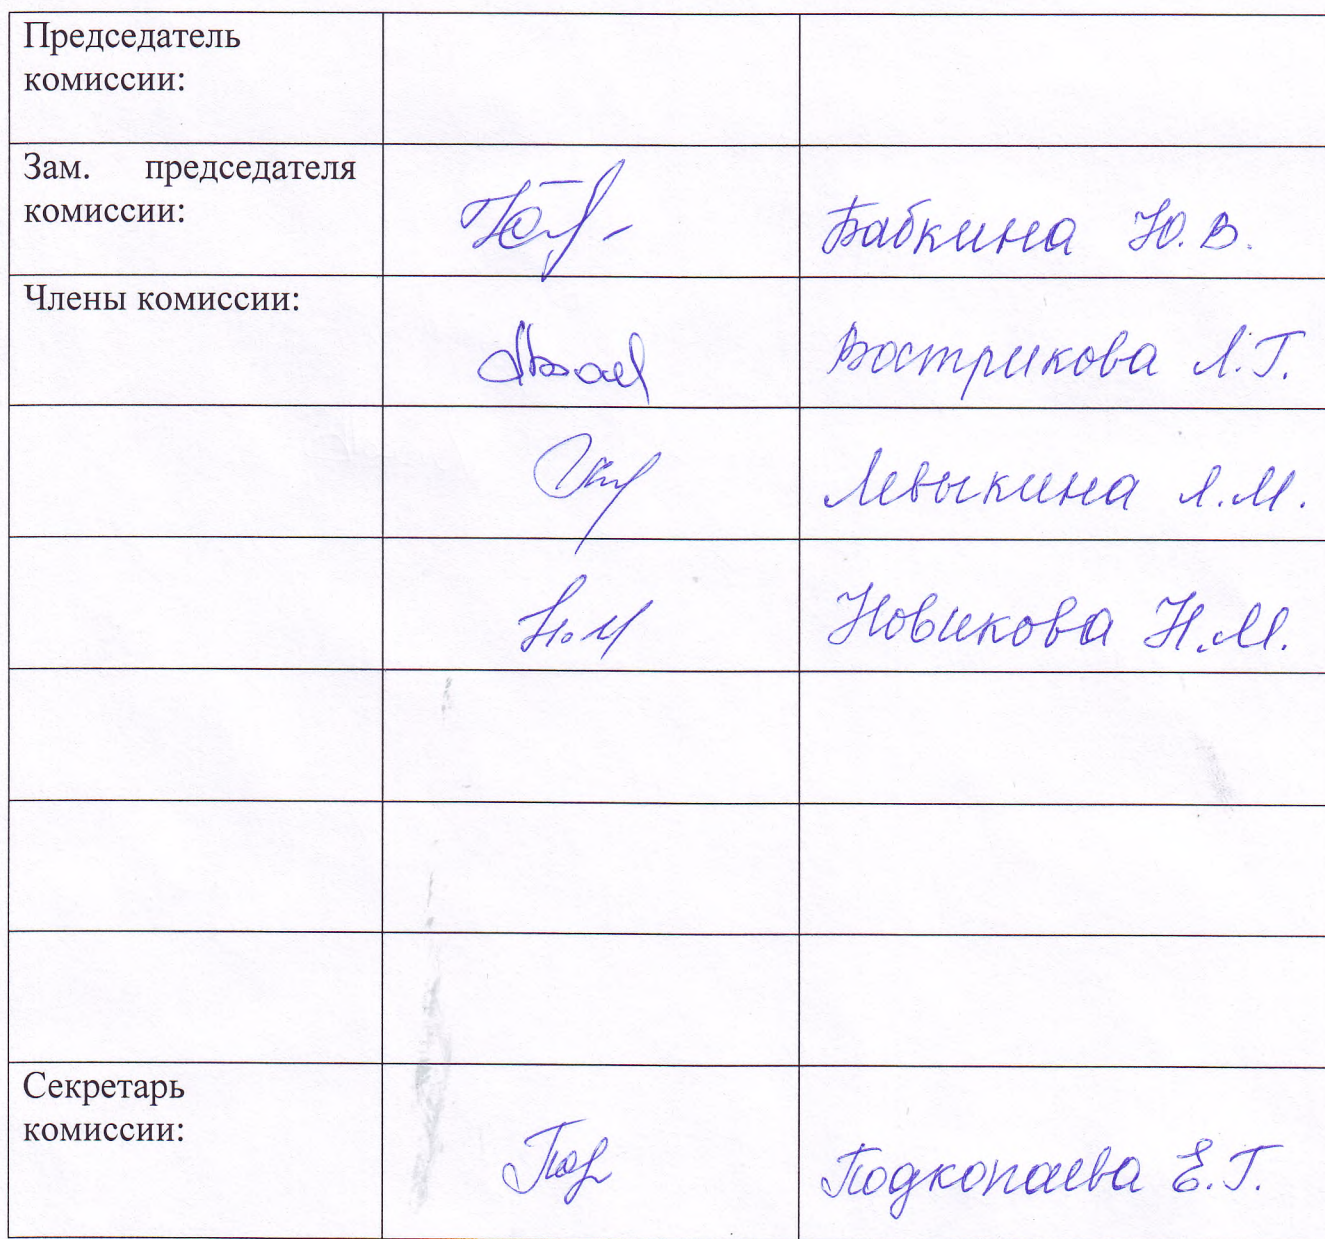 Председатель
комиссии:
Зам. председателя
комиссии:
Бабкина Ю.В.
Члены комиссии:
Вострикова Л.Г.
Левыкина Л.М.
Новикова Н.М.
Секретарь
комиссии:
Подкопаева Е.Г.